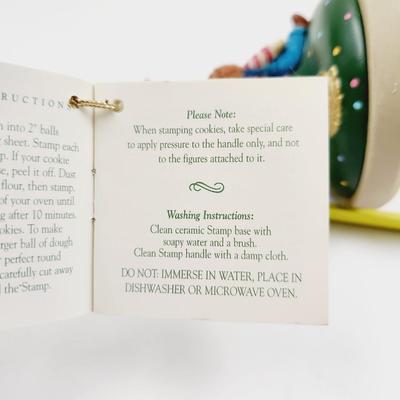 RUCTION
n into 2" balls
g sheet. Stamp each
p. If your cookie
e, peel it off. Dust
flour, then stamp.
of your oven until
ng after 10 minutes.
okies. To make
rger ball of dough
r perfect round
carefully cut away
d the Stamp.
Please Note:
When stamping cookies, take special care
to apply pressure to the handle only, and not
to the figures attached to it.
Washing Instructions:
Clean ceramic Stamp base with
soapy water and a brush.
Clean Stamp handle with a damp cloth.
DO NOT: IMMERSE IN WATER, PLACE IN
DISHWASHER OR MICROWAVE OVEN.